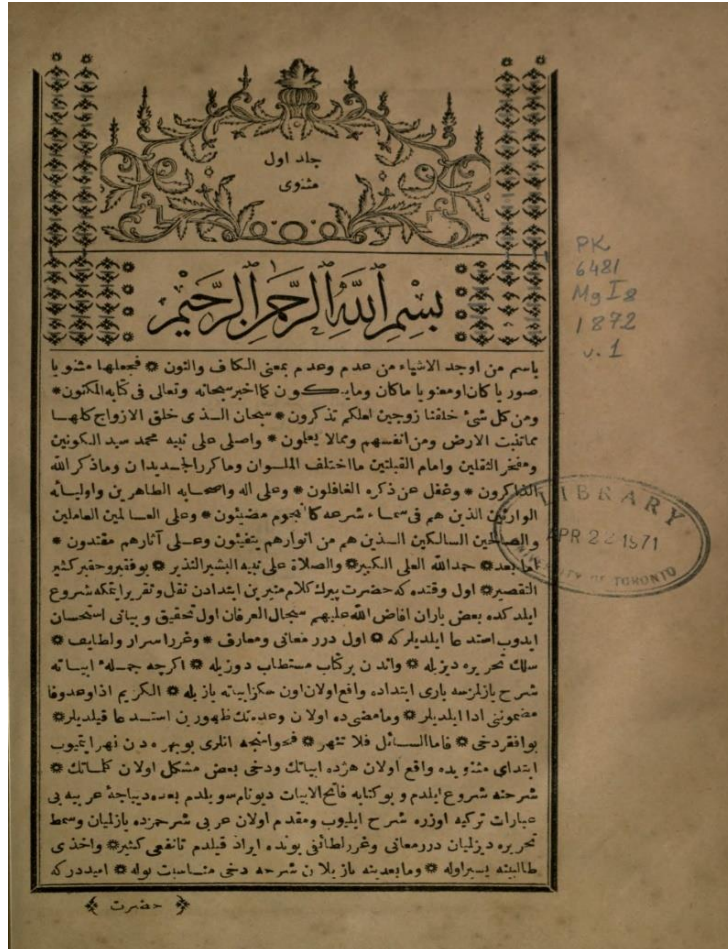 جلد اول
مثنوی
بسم الله الرحمن الرحیم
PK
6481
Mg I8
1872
v. 1
یاسم من اوجد الاشیاء من عدم وعدم بمعنی الکاف والنون ❁ فجعلها مثنویا
صوریا کان اومعنویا ماکان ومایکون کما اخبر سبحانه وتعالی فی کتابه المکنون ❁
ومن کل شئ خلقنا زوجین لعلکم تذکرون ❁ سبحان الذی خلق الازواج کلها
مماتنبت الارض ومن انفسهم وممالا یعلمون ❁ واصلی علی نبیه محمد سید الکونین
ومفخر الثقلین وامام القبلتین مااختلف الملوان وماکرر الجدیدان وماذکر الله
الذاکرون ❁ وغفل عن ذکره الغافلون ❁ وعلی اله واصحابه الطاهرین واولیائه
الوارثین الذین هم فی سماء شرعه کالنجوم مضیئون ❁ وعلی العالمین العاملین
والصالحین السالکین الذین هم من انوارهم یتفیئون وعلی آثارهم مقتدون ❁
اما بعد ❁ حمدالله العلی الکبیر ❁ والصلاة علی نبیه البشیر النذیر ❁ بوفقیر وحقیر کثیر
التقصیر ❁ اول وقتده که حضرت پیرک کلام منیرین ابتدادن نقل وتقریر ایتمکه شروع
ایلدکده بعض یاران افاض الله علیهم سجال العرفان اول تحقیق و بیانی استحسان
ایدوب استدعا ایلدیلر که ❁ اول درر معانی ومعارف ❁ وغرر اسرار ولطایف ❁
سلک تحریره دیزیله ❁ واندن برکتاب مستطاب دوزیله ❁ اکرچه جمله ابیاته
شرح یازلمزسه باری ابتداده واقع اولان اون سکز ابیاته یازیله ❁ الکریم اذا وعد وفا
مضموننی ادا ایلدیلر ❁ ومامضی ده اولان وعده نک ظهورین استدعا قیلدیلر ❁
بوافقردخی ❁ فاما السائل فلا تنهر ❁ فحواسنجه انلری بوبهره دن نهر ایتمیوب
ابتدای مثنویده واقع اولان هژده ابیاتک ودخی بعض مشکل اولان کلماتک ❁
شرحنه شروع ایلدم و بوکتابه فاتح الابیات دیونام سویلدم بعده دیباجهٔ عربیه یی
عبارات ترکیه اوزره شرح ایلیوب ومقدم اولان عربی شرحمزده یازلمیان وسمط
تحریره دیزلمیان درر معانی وغرر لطائفی بونده ایراد قیلدم تانفعی کثیر ❁ واخذی
طالبینه یسیر اوله ❁ ومابعدینه یازیلان شرحه دخی مناسبت بوله ❁ امیددر که
حضرت
LIBRARY
APR 22 1971
UNIVERSITY OF TORONTO